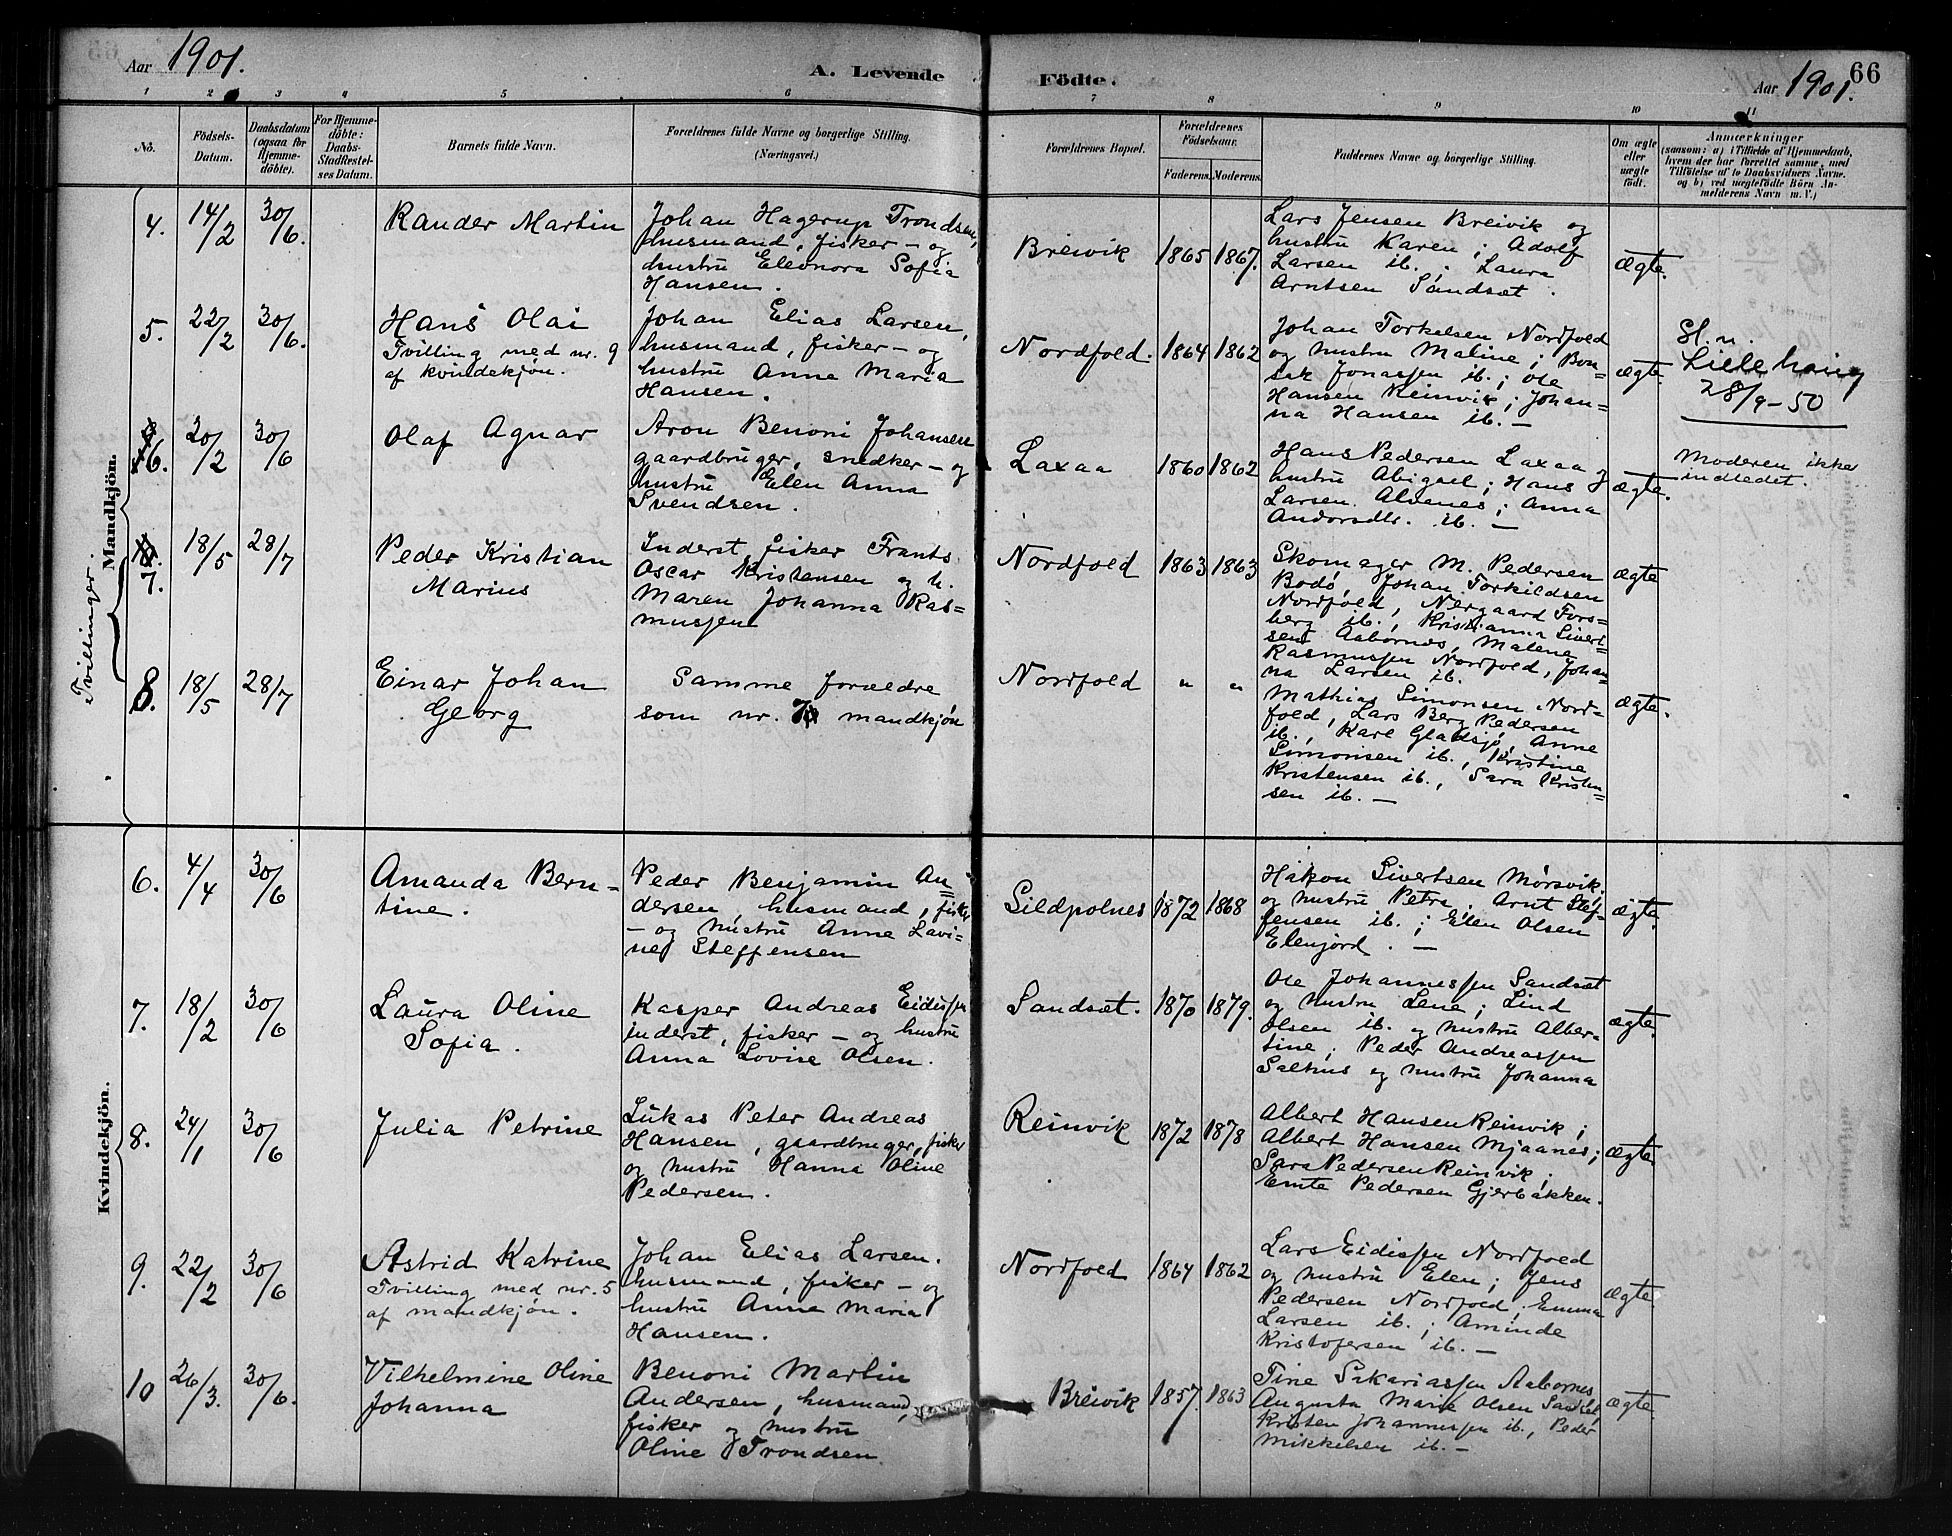 Aar 1901.
A. Levende
Födte.
Aar 1901.
66
1 2 3 4 5 6 7 8 9 10 11
No.
Födsels-
Datum.
Daabsdatum
(ogsaa for
Hjemme-
döbte).
For Hjemme-
döbte:
Daabs-
Stadfæstel-
ses Datum.
Barnets fulde Navn.
Forældrenes fulde Navne og borgerlige Stilling.
(Næringsvei.)
Forældrenes Bopæl.
Forældrenes
Födselsaar.
Faderens. Moderens.
Faddernes Navne og borgerlige Stilling.
Om ægte
eller
uægte
födt.
Anmærkninger
(saasom: a) i Tilfælde af Hjemmedaab,
hvem der har forrettet samme, med
Tilföielse af to Daabsvidners Navne.
og b) ved uægtefödte Börn An-
melderens Navn m. V.)
Mandkjön.
Tvillinger.
4.
14/2
30/6.
Rander Martin
Johan Hagerup Trondsen,
husmand, fisker – og
hustru Eleonora Sofia
Hansen.
Breivik
1865
1867.
Lars Jensen Breivik og
hustru Karen; Adolf
Larsen ib.; Laura
Arntsen Sandsæt.
ægte.
5.
22/2
30/6.
Hans Olai
Tvilling med nr. 9
af kvindekjøn.
Johan Elias Larsen,
husmand, fisker – og
hustru Anne Maria
Hansen.
Nordfold.
1864
1862
Johan Torkelsen Nordfold
og hustru Maline; Bon-
sak Jonassen ib.; Ole
Hansen Reinvik; Johan-
na Hansen ib. –
ægte.
28/9-50
6.
20/2
30/6
Olaf Agnar
Aron Benoni Johansen
gaardbruger, snedker – og
hustru Elen Anna
Svendsen.
Laxaa
1860
1862
Hans Pedersen Laxaa og
hustru Abigael; Hans
Larsen Alvenes; Anna
Andorsdtr. ib. –
ægte.
Moderen ikke
indledet.
7.
18/5
28/7
Peder Kristian
Marius
Inderst, fisker Frants
Oscar Kristensen og h.
Maren Johanna Ras-
mussen
Nordfold
1863
1863
Skomager M. Pedersen
Bodø, Johan Torkildsen
Nordfold, Nergaard Fors-
berg ib., Kristianna Sivert-
sen Aabornes, Malene
Rasmussen Nordfold, Johan-
na Larsen ib.
ægte
8.
18/5
28/7
Einar Johan
Georg
Samme forældre
som nr. 7 mandkjøn
Nordfold
"
"
Mathias Simonsen Nord-
fold, Lars Berg Pedersen
ib., Karl Gladsjø, Anne
Simonsen ib., Kristine
Kristensen ib., Sara Kristen-
sen ib. –
ægte.
Kvindekjön.
6.
4/4
30/6
Amanda Bern-
tine.
Peder Benjamin An-
dersen, husmand, fisker
– og hustru Anne Lavi-
ne Steffensen
Sildpolnes
1872
1868
Håkon Sivertsen Mørsvik.
og hustru Petra. Arnt Stef-
fensen ib.; Elen Olsen
Elenjord. –
ægte.
7.
18/2
30/6
Laura Oline
Sofia.
Kasper Andreas Eidissen
inderst, fisker – og hustru
Anna Lovise Olsen.
Sandsæt.
1870
1879.
Ole Johannessen Sandsæt
og hustru Lene; Lind
Olsen ib. og hustru Alber-
tine; Peder Andreassen
Salthus og hustru Johanna
ægte.
8.
24/1
30/6
Julia Petrine
Lukas Peter Andreas
Hansen, gaardbruger, fisker
og hustru Hanna Oline
Pedersen.
Reinvik
1872
1878
Albert Hansen Reinvik;
Albert Hansen Mjaanes;
Sara Pedersen Reinvik;
Pedersen Gjerbakken.
ægte.
9.
22/2
30/6
Astrid Katrine
Tvilling med nr. 5
af mandkjøn.
Johan Elias Larsen.
husmand, fisker – og
hustru Anne Maria
Hansen.
Nordfold
1864
1862
Lars Eidissen Nordfold
og hustru Elen; Jens
Pedersen Nordfold, Emma
Larsen ib.; Aminde
Kristofersen ib. –
ægte
10
26/3.
30/6.
Vilhelmine Oline
Johanna
Benoni Martin
Andersen, husmand,
fisker og hustru
Oline Trondsen
Breivik
1857.
1863
Tine Sakariassen Aabornes
Augusta Marie Olsen
Kristen Johannessen ib., Peder
Mikkelsen ib. –
ægte.